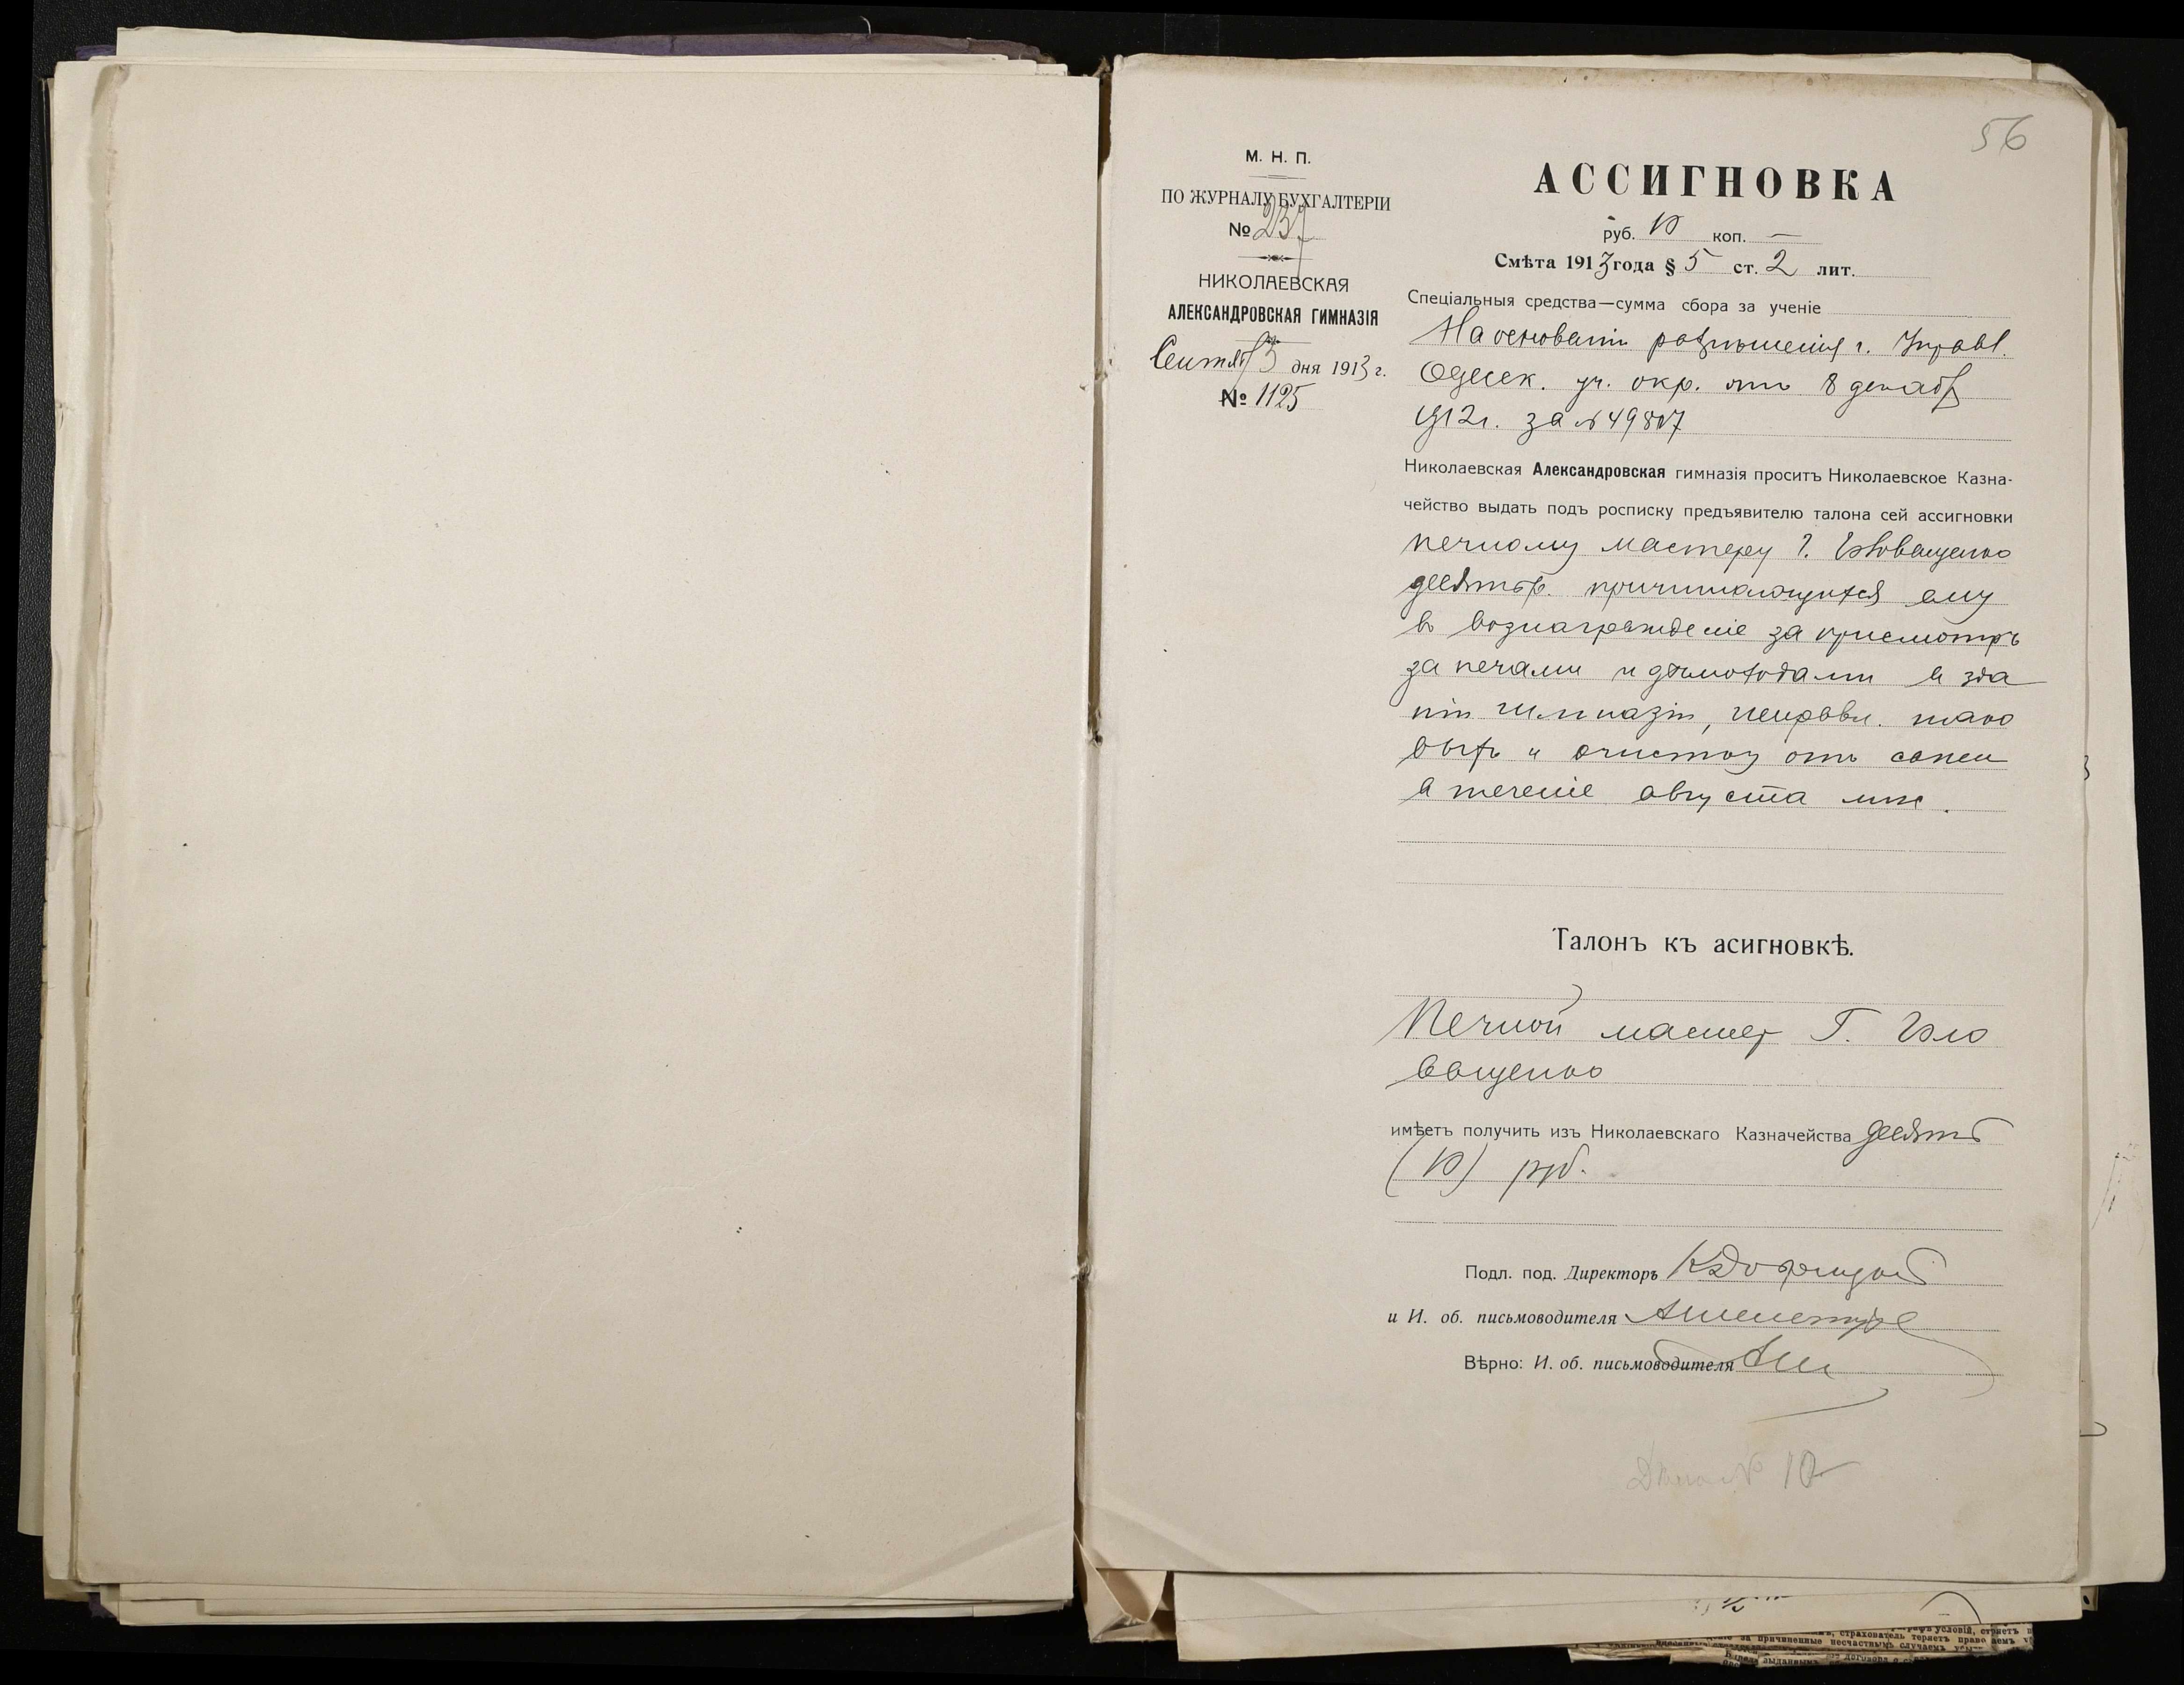 56
М. Н. П.
ПО ЖУРНАЛУ БУХГАЛТЕРІИ
№ 237
НИКОЛАЕВСКАЯ
АЛЕКСАНДРОВСКАЯ ГИМНАЗІЯ
Сентяб 3 дня 1913 г.
№ 1125
АССИГНОВКА
руб. 10 коп. —
Смѣта 1913 года § 5 ст. 2 лит.
Спеціальныя средства—сумма сбора за ученіе
На основаніи разрѣшенія г. Управл.
Одесск. уч. окр. отъ 8 декабр
1912г. за №49807
Николаевская Александровская гимназія проситъ Николаевское Казна-
чейство выдать подъ росписку предъявителю талона сей ассигновки
печному мастеру Г.
десять р. причитающихся ему
въ вознагражденіе за присмотръ
за печами и дымоходами въ зда
ніи гимназіи, исправл. тако
выхъ и очистку отъ сажи
въ теченіе августа мѣс.
Талонъ къ асигновкѣ.
Печной мастер Г.
ващенко
имѣетъ получить изъ Николаевскаго Казначейства десять
(10) руб.
Подл. под. Директоръ
и И. об. письмоводителя
Вѣрно: И. об. письмоводителя
10